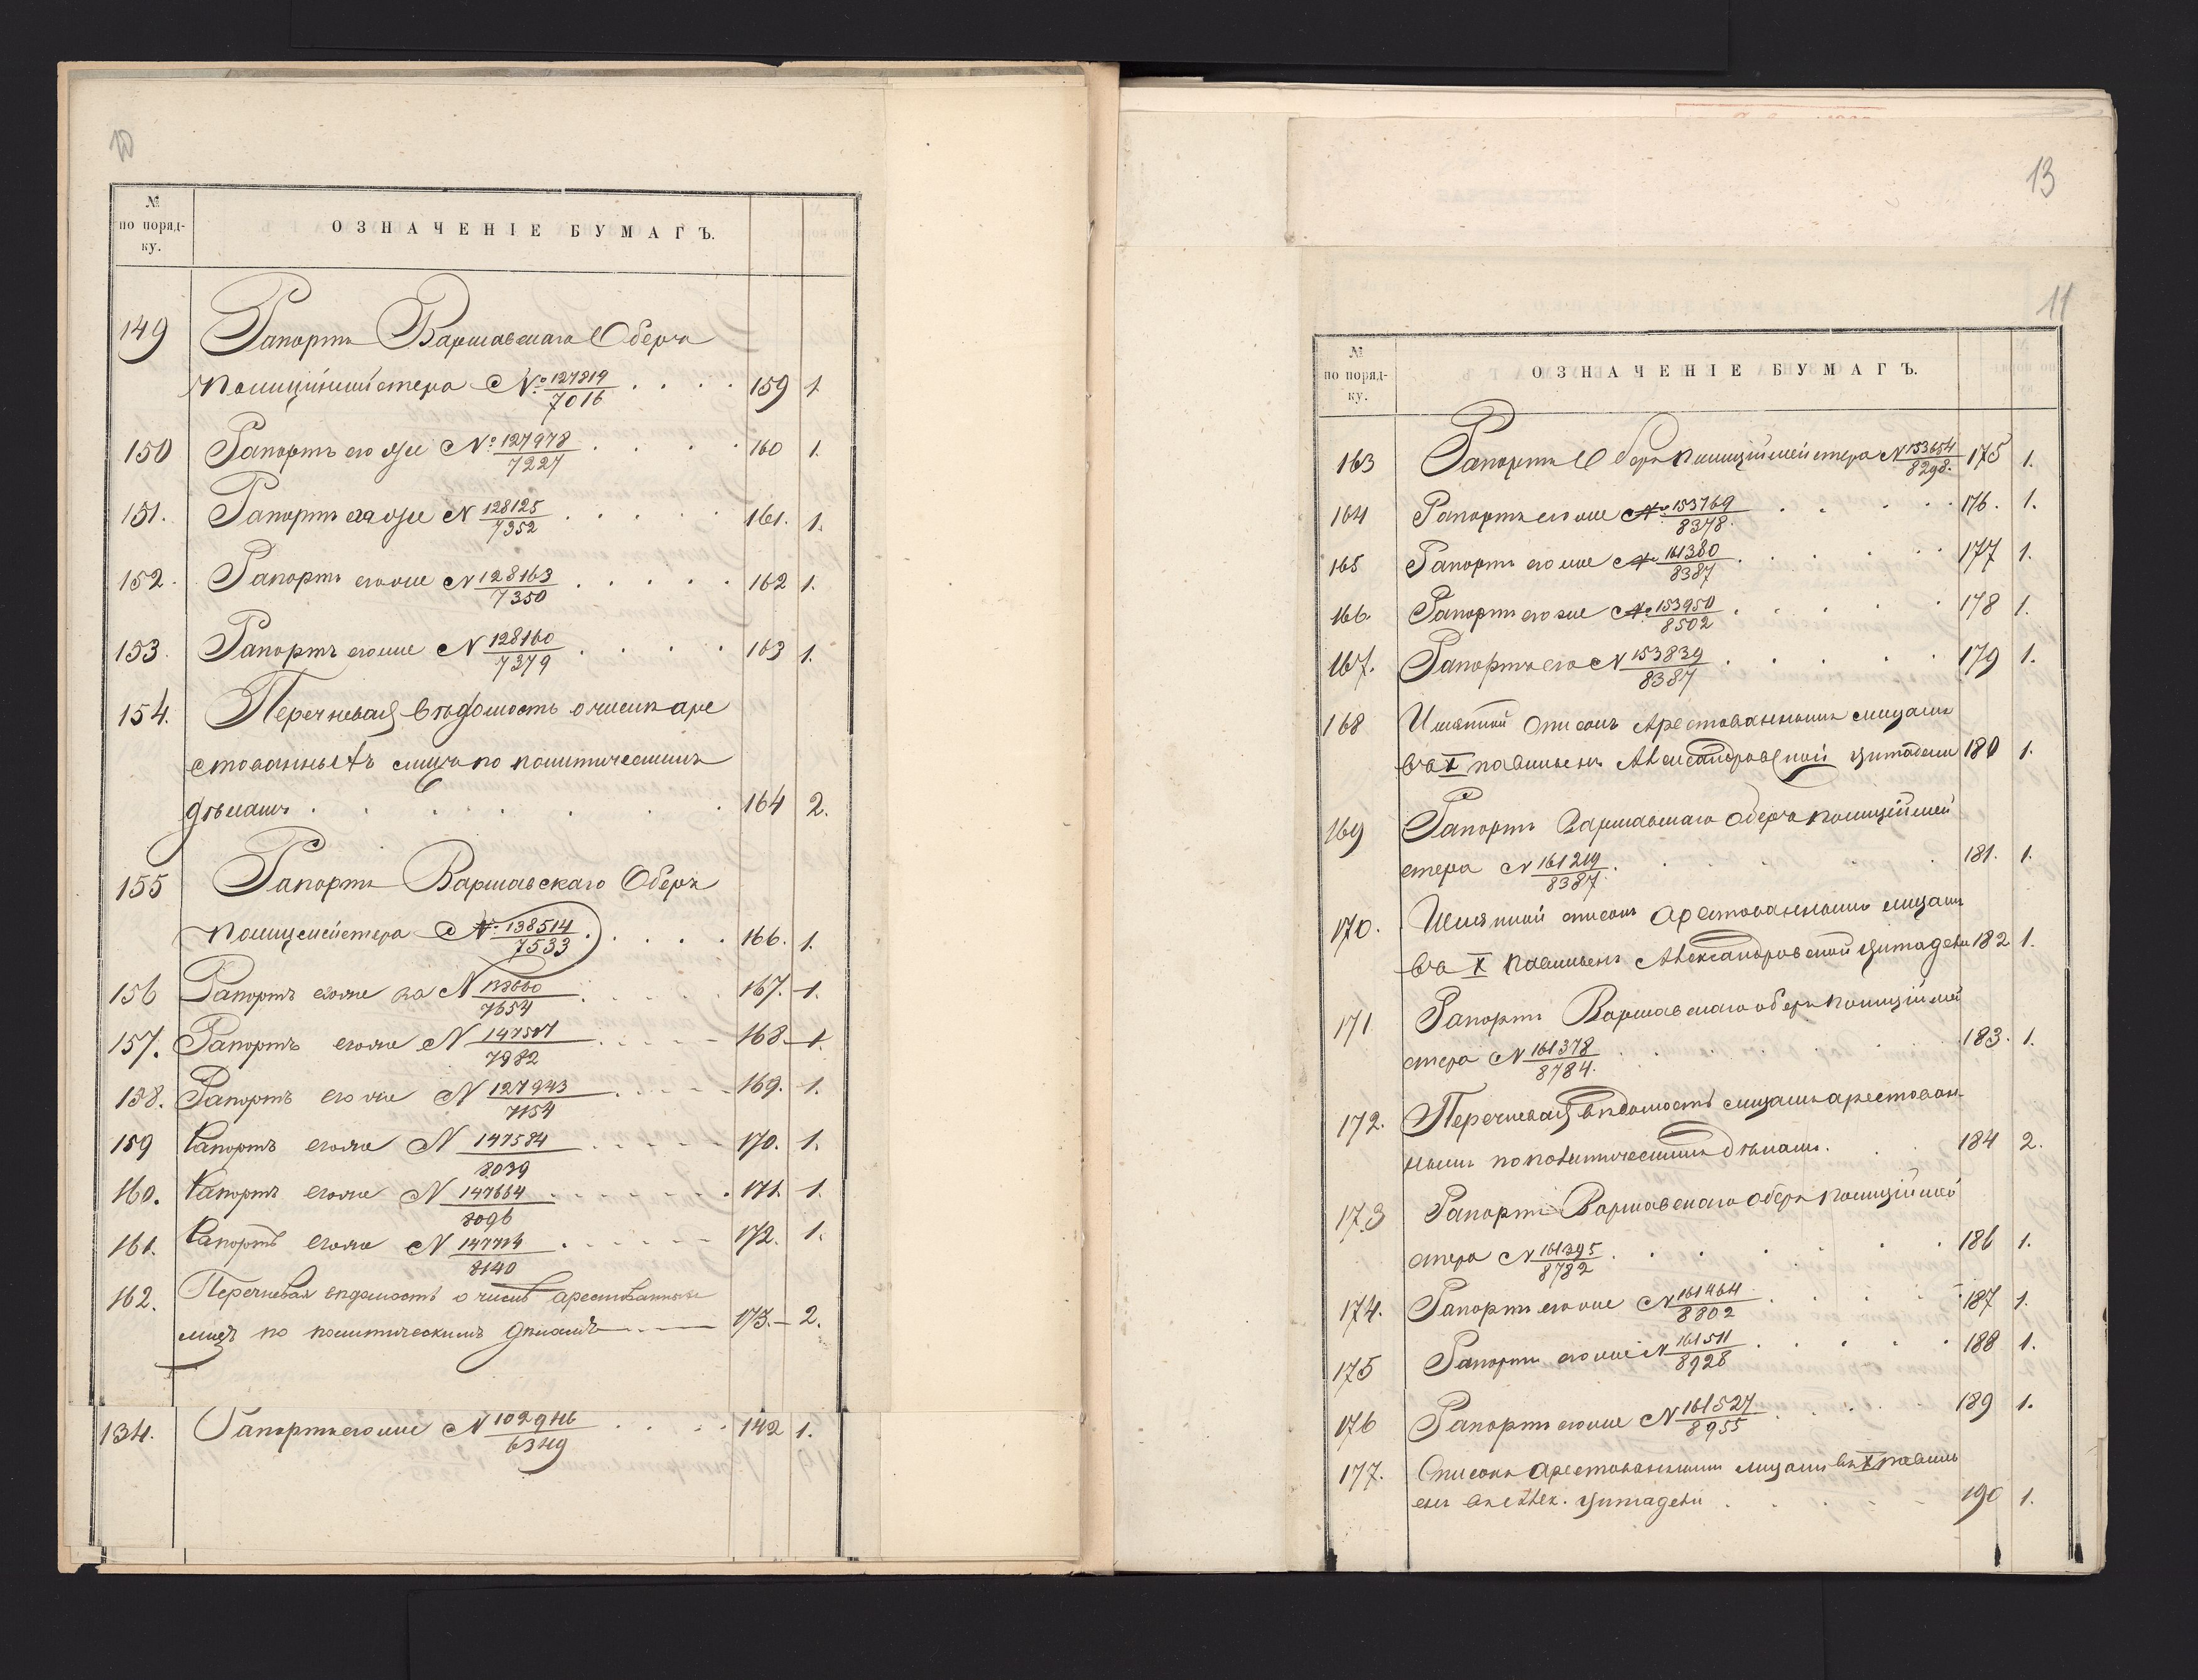 10
№
по поряд-
ку.
ОЗНАЧЕНІЕ БУМАГЪ.
149 Рапортъ Варшавскаго Оберъ
Полиціймейстера №: 127819/7016 . . . . 159 1.
150 Рапортъ его же №: 127978/7227 . . . . 160 1.
151. Рапортъ его же N 128125/7352 . . . . . 161. 1.
152. Рапортъ его же N 128163/7350 . . . . . 162 1.
153. Рапортъ его же N 128160/7379 . . . . 163 1.
154. Перечневая вѣдомость о числѣ аре
стованныхъ лицъ по политическимъ
дѣламъ . . . . . . 164 2.
155 Рапортъ Варшавскаго Оберъ
Полицмейстера №: 138514/7533 . . . . . 166. 1.
156 Рапортъ его же за N /7654 . . . . 167. 1.
157. Рапортъ его же N /7982 . . . . 168. 1.
158. Рапортъ его же N 127943/7154 . . . . 169. 1.
159 Рапортъ его же N 147584/8039 . . . . 170. 1.
160. Рапортъ его же N 147664/8096 . . . . . . . 171. 1.
161. Рапортъ его же N /8140 . . . . . . 172. 1.
162. Перечневая вѣдомость о числѣ арестованныхъ
лицъ по политическимъ дѣламъ 173. 2.
134. Рапортъ его же N 102946/6349 . . . . 142 1.
13
11
№
по поряд-
ку.
ОЗНАЧЕНІЕ БУМАГЪ.
163 Рапортъ Оберъ Полиціймейстера N 153654/8298. 175 1.
164 Рапортъ его же №: 153769/8378. . . . . . 176. 1.
165 Рапортъ его же № 161380/8387 . . . . . . 177 1.
166. Рапортъ его же № 153950/8502 . . . . . 178 1.
167. Рапортъ его N 153839/8387 . . . . . . 179 1.
168 Имянной списокъ Арестованнымъ лицамъ
въ X павильонъ Александровской цитадели 180 1.
169 Рапортъ Варшавскаго Оберъ Полиціймей
стера N 161219/8387. . . . . . 181. 1.
170. Имянной списокъ арестованнымъ лицамъ
въ X павильонъ Александровской цитадели 182 1.
171 Рапортъ Варшавскаго оберъ полиціймей
стера N 161378/8784. . . . . . 183. 1.
172. Перечневая вѣдомость лицамъ арестован
нымъ по политическимъ дѣламъ . . . 184 2.
173 Рапортъ Варшавскаго оберъ полиціймей
стера N 161395/8782 . . . . . . 186 1.
174. Рапортъ его же N 161464/8802 . . . . . 187 1.
175 Рапортъ его же N 161511/8928 . . . . . 188 1.
176 Рапортъ его же N 161527/8955 . . . . . 189 1.
177. Списокъ арестованнымъ лицамъ въ X павиль
онъ Алек. цитадели . . . . . 190 1.